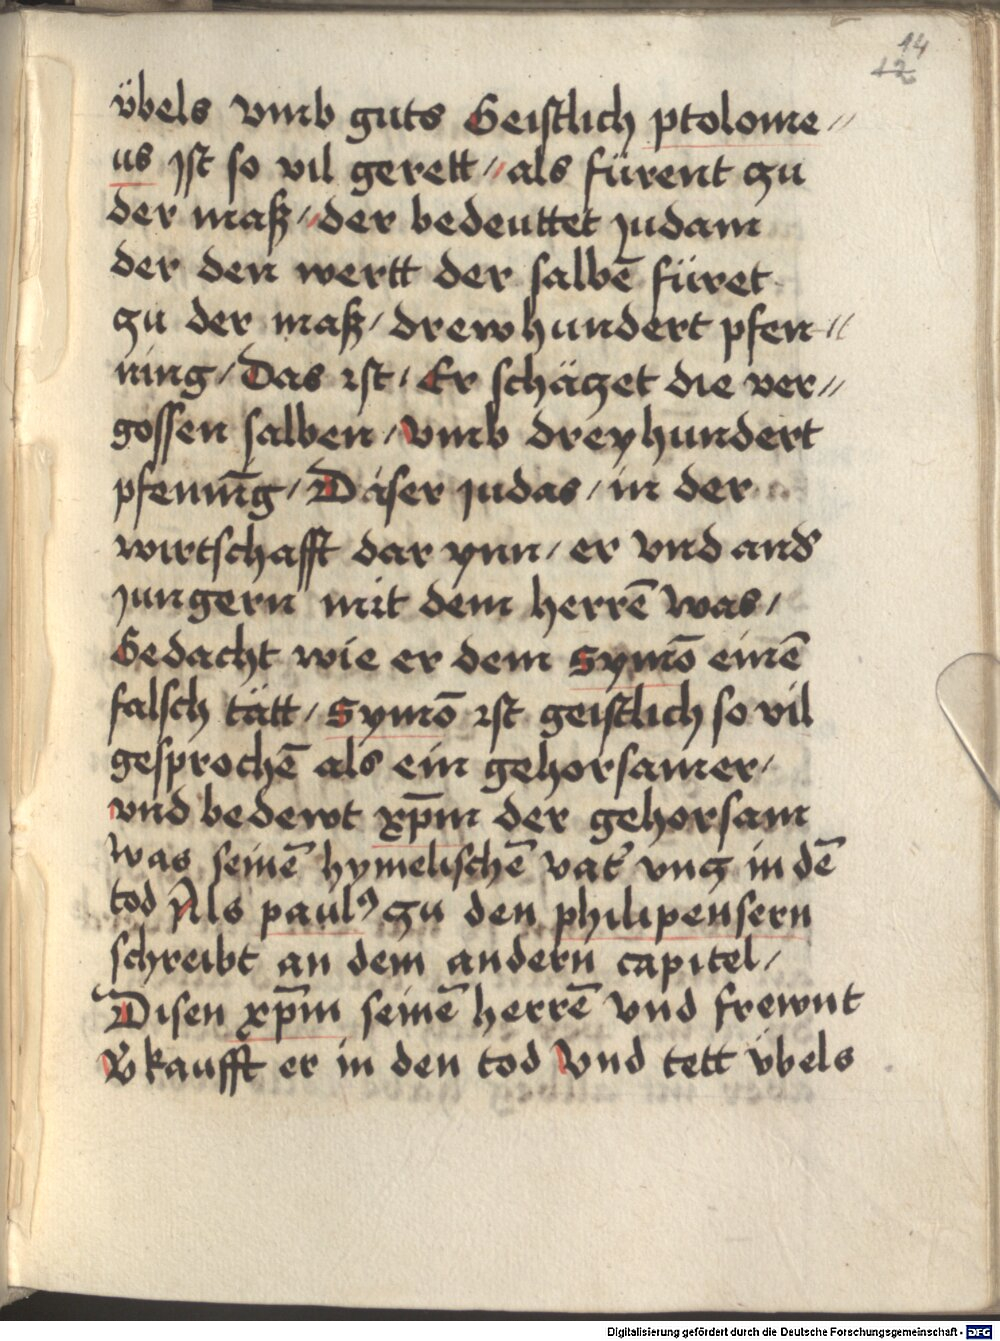 14
12
übels vmb guts Geistlich ptolome//
us ist so vil gerett // als fürent zu
der maß // der bedeuttet judam
der den wertt der salbē füret
zu der maß / drewhundert pfen//
ning / Das ist / Er schäzet die ver//
gossen salben / vmb dreyhundert
pfening / Diser judas / in der
wirtschafft dar ynn / er vnd and̾
jungern mit dem herrē was /
Gedacht wie er dem Symō einē
falsch tätt / Symō ist geistlich so vil
gesprochē als ein gehorsamer /
vnd bedewt xp̄m der gehorsam
was seinē hymelischē vat̾ vnz in dē
tod Als paulꝰ zu den philipensern
schreibt an dem andern capitel /
Disen xp̄m seinē herrē vnd frewnt
V̾kaufft er in den tod Vnd tett übels
Digitalisierung gefördert durch die Deutsche Forschungsgemeinschaft - DFG